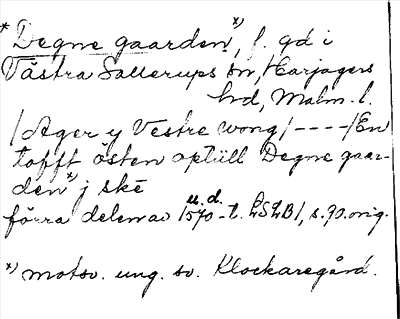 * Degne gaarden *), f. gd i
Västra Sallerups sn, Harjagers
hd, Malm. l.
/Ager y Vestre wong/ ---- /En
tofft östen optill Degne gaar-
den *) j ske
förra delen av 1570-t. u.d. LSZB/, s. 90. orig.
*) motsv. ung. sv. Klockaregård.